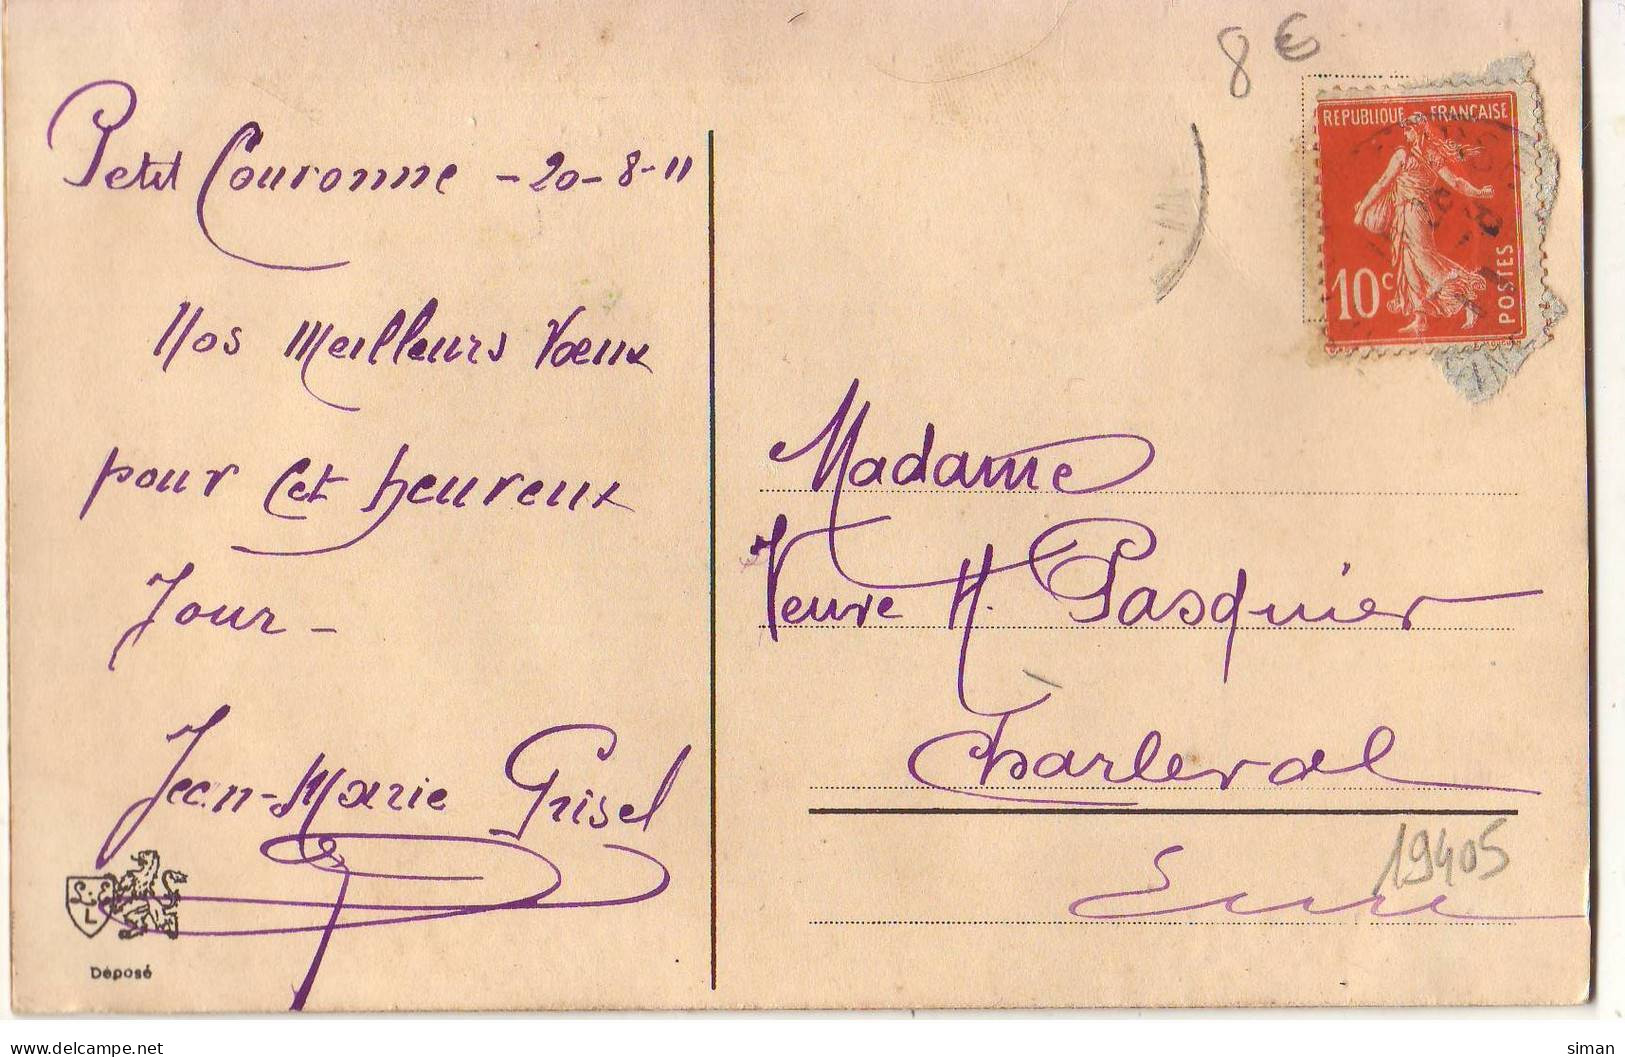 8 €
REPUBLIQUE FRANÇAISE
10 c
POSTES
Petit Couronne - 20-8-11
Nos Meilleurs Vœux
pour cet heureux
Jour -
Jean-Marie Grisel
Madame
Veuve H. Pasquier
Charleval
Eure
19405
L
Déposé
delcampe.net
siman